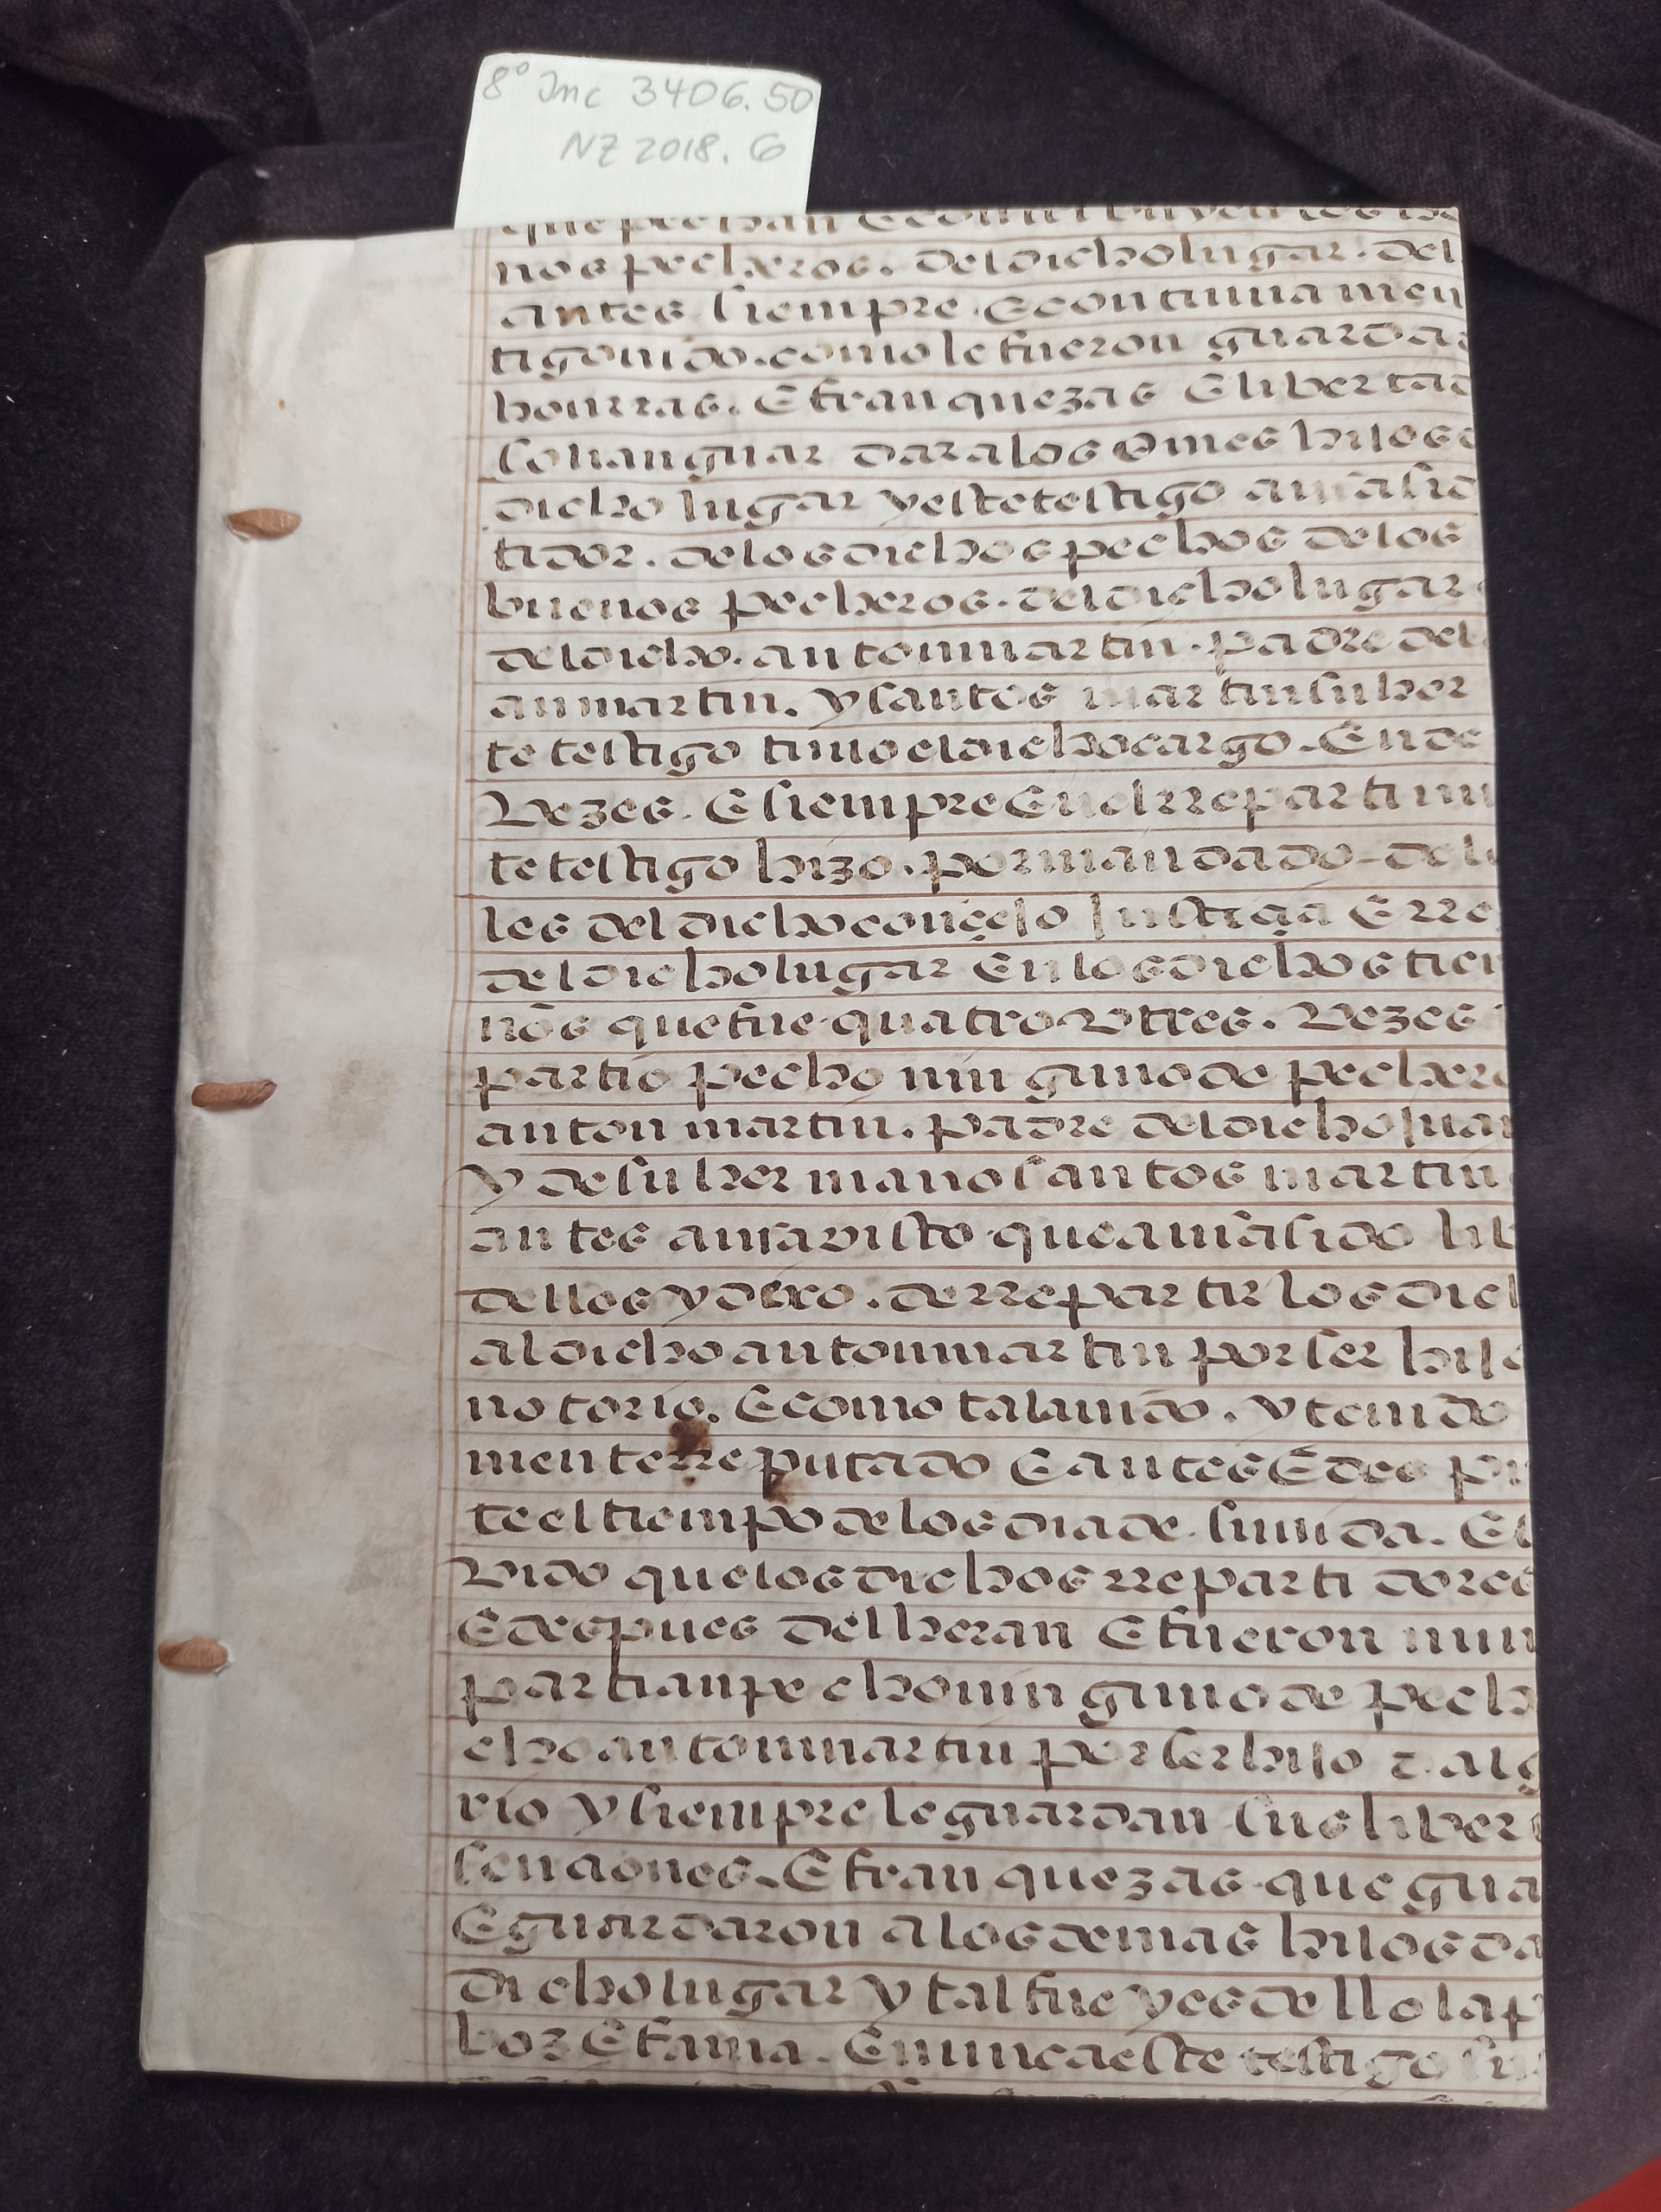 8° Inc 3406.50
NZ 2018.6
que pechan E contribuyen los bue
nos pecheros. del dicho lugar. del
antes siempre. E continamen
tigo vido. como le fueron guarda
honrras. E franquezas E libertad
solian guardar a los omes hijos d
dicho lugar y este testigo avia sid
tidor. de los dichos pechos de los
buenos pecheros. del dicho lugar
del dicho. anton martin. padre del
an martin. y santos martin su her
te testigo tuvo el dicho cargo. En de
Vezes. E siempre En el rrepartimi
te testigo hizo. por mandado de l
les del dicho conçejo justiçia E rre
del dicho lugar En los dichos tien
nos que fue quatro v tres. Vezes
partio pecho ninguno de pechero
anton martin. padre del dicho juan
y de su hermano santos martin
antes avia visto que avia sido lib
dellos y dexo. de rrepartir los dich
al dicho anton martin por ser hijo
notorio. E como tal avido. y tenido
mente rreputado E antes E des pu
te el tiempo de los dia de. su vida. E
Vido que los dichos rrepartidores
E despues del heran E fueron nun
partian pecho ninguno de pech
cho anton martin por ser hijo d alg
rio y siempre le guardan sus libert
senciones. E franquezas que gua
E guardaron a los demas hijos da
dicho lugar y tal fue y es dello la p
boz E fama. E nunca este testigo su